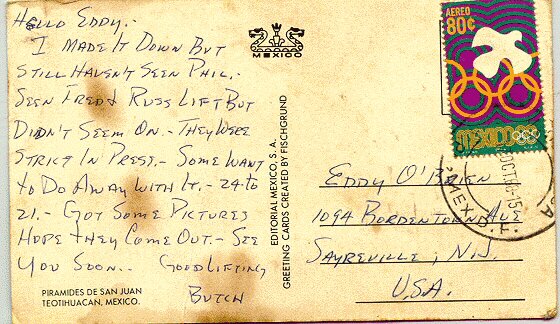 Hello Eddy.-
I Made It Down But
Still Haven't Seen Phil.-
Seen Fred & Russ Lift But
Didn't Seem On.- They Were
Strict In Press.- Some Want
to Do Away With It.- 24 to
21.- Got Some Pictures
Hope They Come Out.- See
You Soon.. Good Lifting
Butch
PIRAMIDES DE SAN JUAN
TEOTIHUACAN, MEXICO.
MEXICO
EDITORIAL MEXICO, S. A.
GREETING CARDS CREATED BY FISCHGRUND
AEREO
80¢
MEXICO
Eddy O'Brien
1094 Bordentown Ave
Sayreville, N.J.
U.S.A.